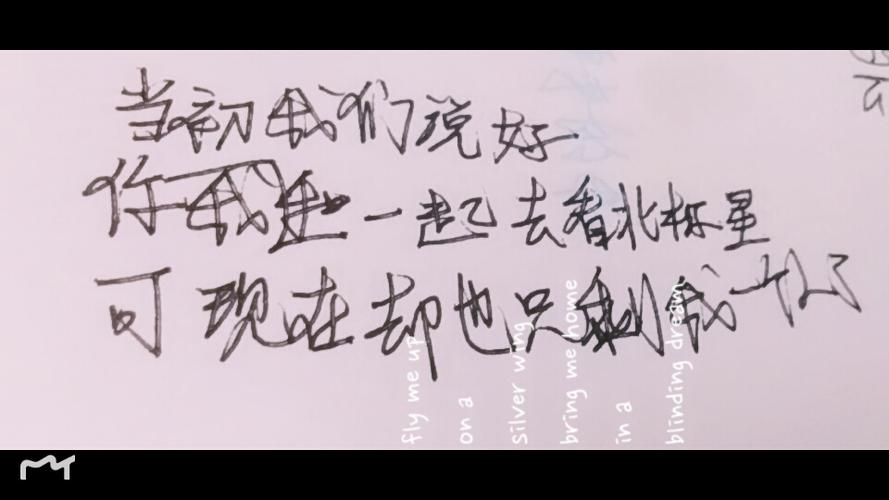 当初我们说好
你我一起去看北极星
可现在却也只剩我一个
fly me up
on a
silver wing
bring me home
in a
blinding dream